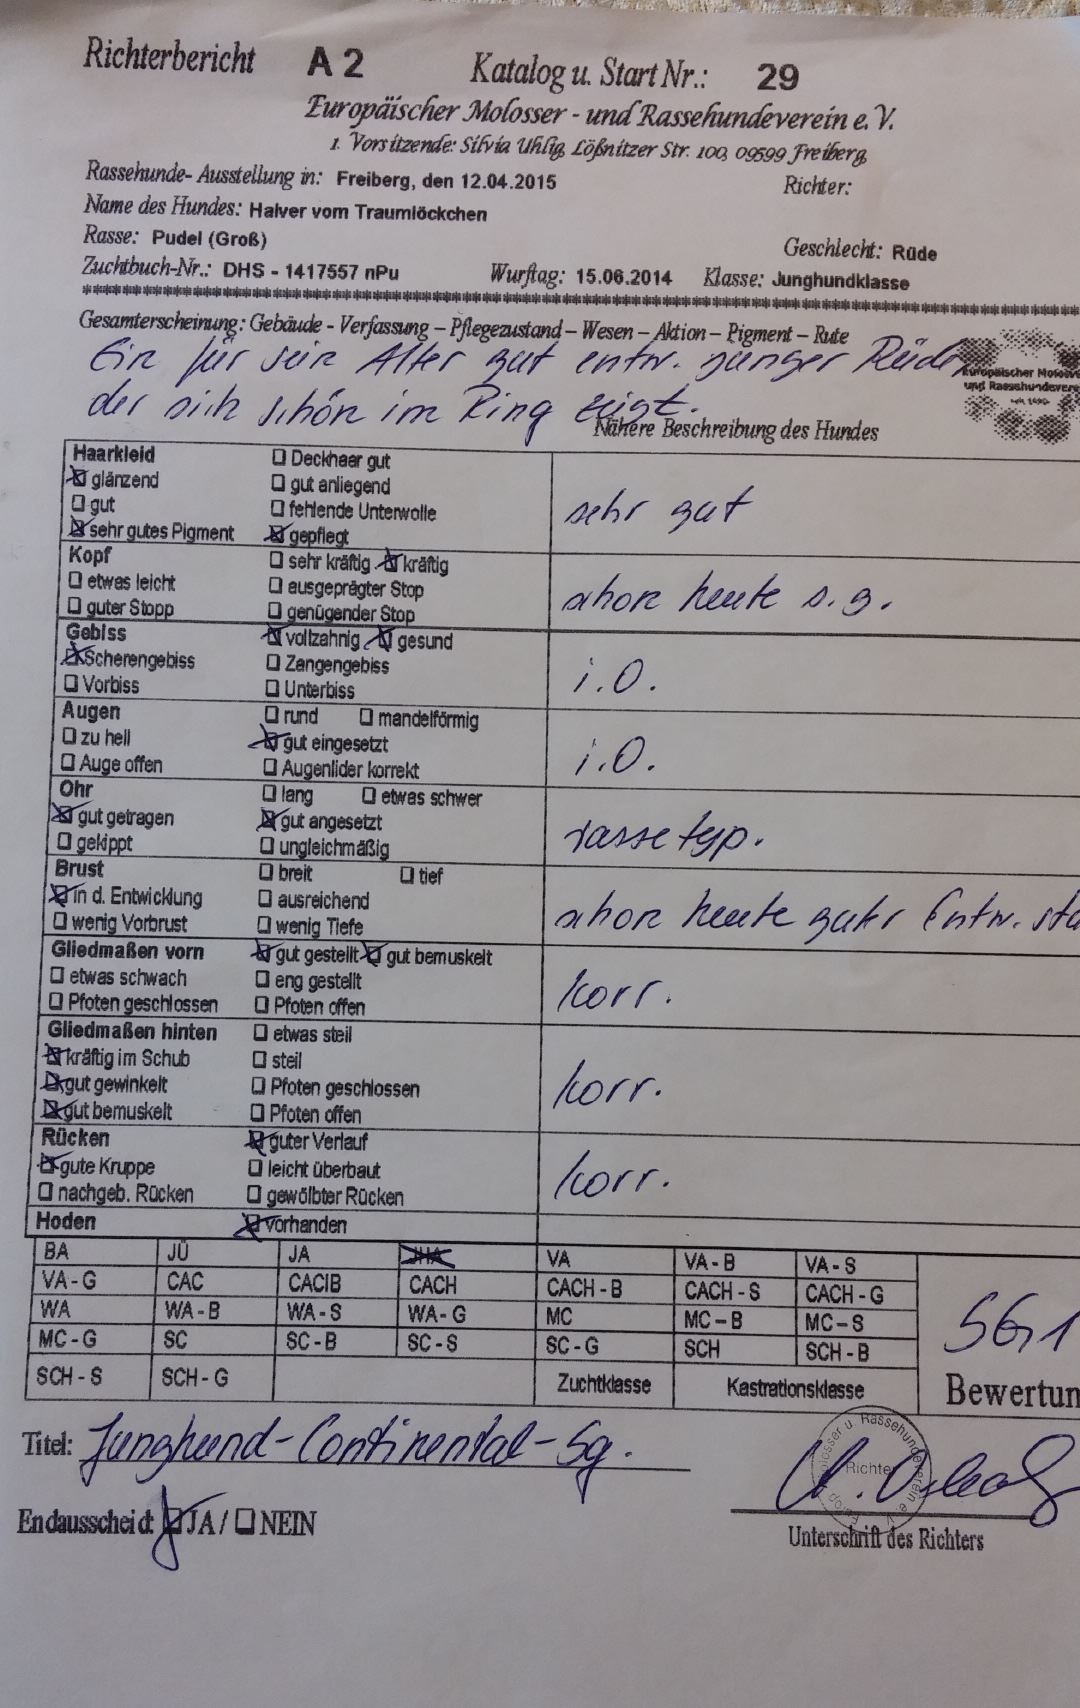 Richterbericht A 2 Katalog u. Start Nr.: 29
Europäischer Molosser - und Rassehundeverein e. V.
1. Vorsitzende: Silvia Uhlig, Lößnitzer Str. 100, 09599 Freiberg,
Rassehunde- Ausstellung in: Freiberg, den 12.04.2015 Richter:
Name des Hundes: Halver vom Traumlöckchen
Rasse: Pudel (Groß) Geschlecht: Rüde
Zuchtbuch-Nr.: DHS - 1417557 nPu Wurftag: 15.06.2014 Klasse: Junghundklasse
Gesamterscheinung: Gebäude - Verfassung – Pflegezustand – Wesen – Aktion – Pigment – Rute
Ein für sein Alter gut entw. junger Rüde,
der sich schön im Ring zeigt.
Europäischer Molosse
und Rassehundevere
Nähere Beschreibung des Hundes
Haarkleid ☐ Deckhaar gut
☒ glänzend ☐ gut anliegend
☐ gut ☐ fehlende Unterwolle sehr gut
☒ sehr gutes Pigment ☒ gepflegt
Kopf ☐ sehr kräftig ☒ kräftig
☐ etwas leicht ☐ ausgeprägter Stop schon heute s. g.
☐ guter Stopp ☐ genügender Stop
Gebiss ☒ vollzahnig ☒ gesund
☒ Scherengebiss ☐ Zangengebiss i.O.
☐ Vorbiss ☐ Unterbiss
Augen ☐ rund ☐ mandelförmig
☐ zu hell ☒ gut eingesetzt i.O.
☐ Auge offen ☐ Augenlider korrekt
Ohr ☐ lang ☐ etwas schwer
☒ gut getragen ☒ gut angesetzt rassetyp.
☐ gekippt ☐ ungleichmäßig
Brust ☐ breit ☐ tief
☒ in d. Entwicklung ☐ ausreichend schon heute guter Entw. sta
☐ wenig Vorbrust ☐ wenig Tiefe
Gliedmaßen vorn ☒ gut gestellt ☒ gut bemuskelt
☐ etwas schwach ☐ eng gestellt korr.
☐ Pfoten geschlossen ☐ Pfoten offen
Gliedmaßen hinten ☐ etwas steil
☒ kräftig im Schub ☐ steil
☒ gut gewinkelt ☐ Pfoten geschlossen korr.
☒ gut bemuskelt ☐ Pfoten offen
Rücken ☒ guter Verlauf
☒ gute Kruppe ☐ leicht überbaut korr.
☐ nachgeb. Rücken ☐ gewölbter Rücken
Hoden ☒ vorhanden
BA JÜ JA JHA VA VA - B VA - S
VA - G CAC CACIB CACH CACH - B CACH - S CACH - G
WA WA - B WA - S WA - G MC MC – B MC – S
MC - G SC SC - B SC - S SC - G SCH SCH - B
SG1
SCH - S SCH - G Zuchtklasse Kastrationsklasse Bewertun
Titel: Junghund-Continental-Sg.
Molosser u. Rassehundeverein e. V. Europ.
Richter
Endausscheid: ☒ JA / ☐ NEIN
Unterschrift des Richters